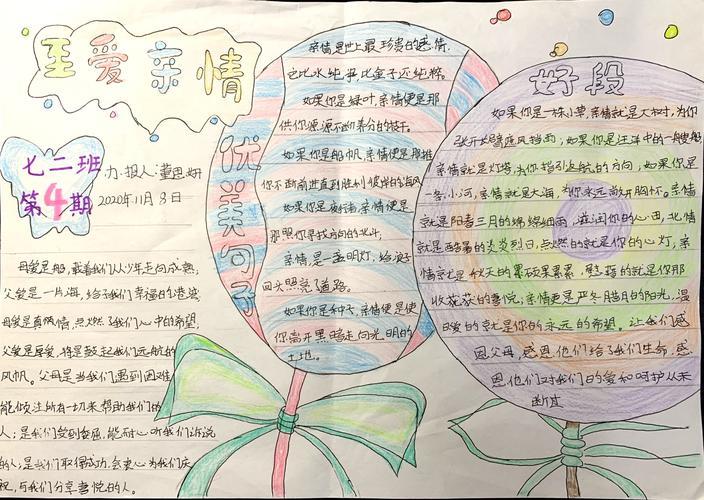 至爱亲情
七二班
第4期
力报人:董思妍
2020年11月8日
母爱是船,载着我们从少年走向成熟;
父爱是一片海,给了我们幸福的港湾
母爱是真情,点燃了我们心中的希望;
父爱是厚爱,将是鼓起我们远航的
风帆。父母是当我们遇到困难
能倾注所有一切来帮助我们的
人;是我们受到委屈,能耐心听我们诉说
的人;是我们取得成功,会衷心为我们庆
祝,与我们分享喜悦的人。
优美句子
亲情是世上最珍贵的感情,
它比水纯,比金子还纯粹。
如果你是绿叶,亲情便是那
供你源源不断养分的枝干。
如果你是船帆,亲情便是那推
你不断前进直到胜利彼岸的海风
如果你是夜行者,亲情便是
那照你寻找方向的北斗,
亲情,是一盏明灯,给浪子
回头照亮了道路。
如果你是种子,亲情便是使
你离开黑暗走向光明的
土地。
好段
如果你是一株小草,亲情就是大树,为你
张开大臂遮风挡雨,如果你是汪洋中的一艘船
亲情就是灯塔,为你指引返航的方向,如果你是
一条小河,亲情就是大海,为你永远敞开胸怀。亲情
就是阳春三月的绵绵细雨,滋润你的心田,
就是酷暑的炎炎烈日,点燃的就是你的心灯,亲
情就是秋天的累硕果累累,的就是你那
收获的喜悦,亲情更是严冬腊月的阳光,温
暖的就是你的永远的希望。让我们感
恩父母,感恩他们给了我们生命,感
恩他们对我们的爱和呵护从未
断过